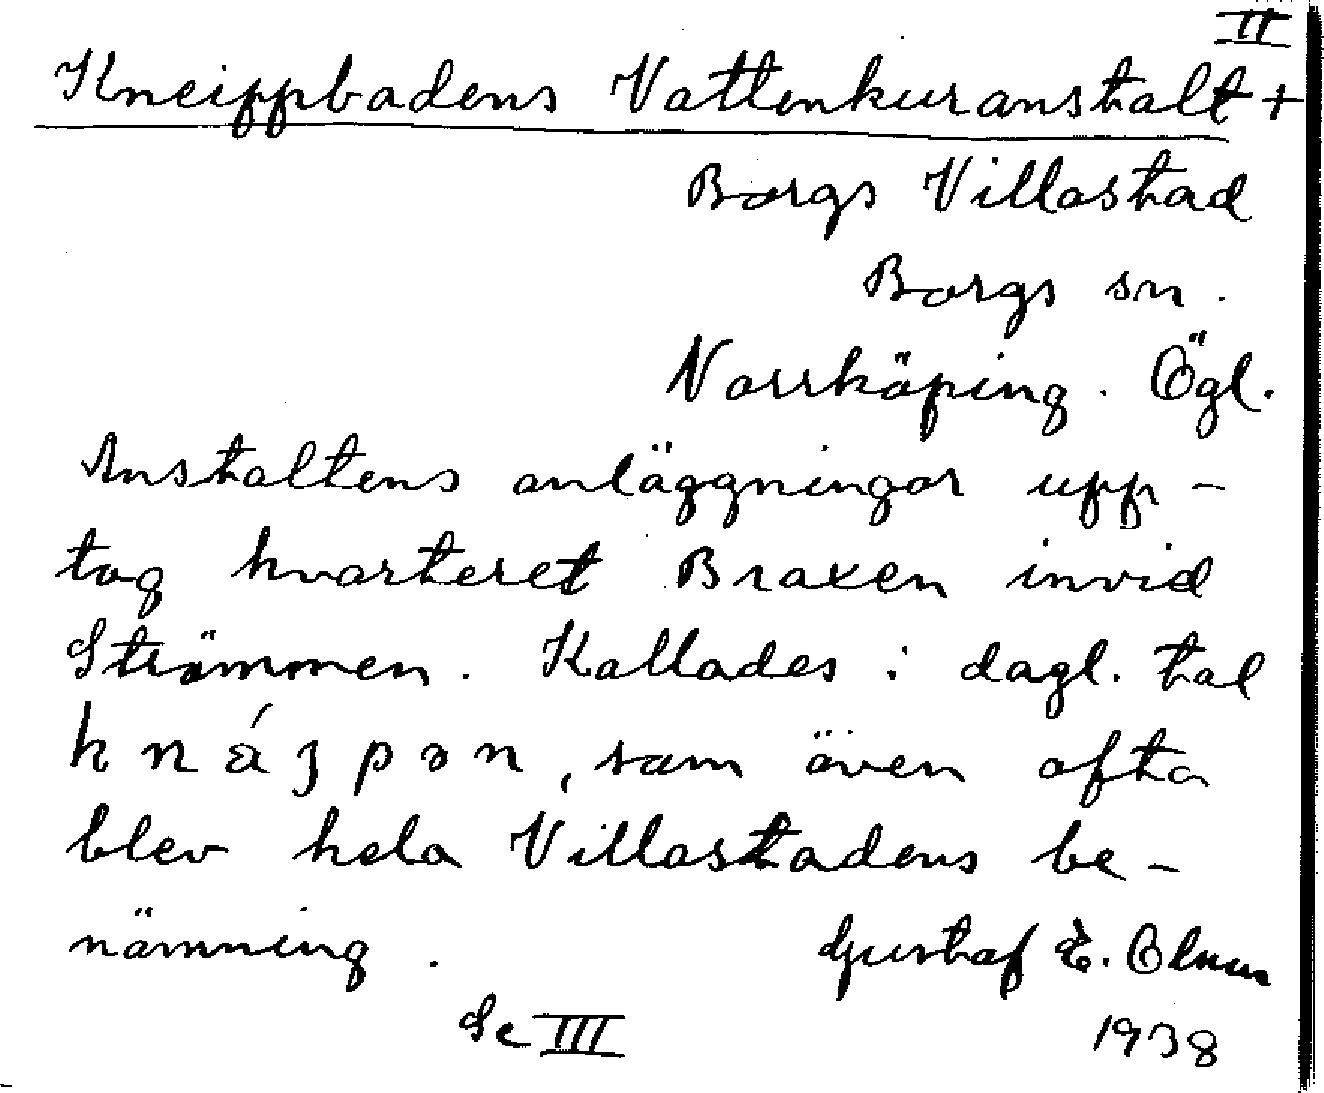 II
Kneippbadens Vattenkuranstalt +
Borgs Villastad
Borgs sn.
Norrköping. Ögl.
Anstaltens anläggningar upp-
tog kvarteret Braxen invid
Strömmen. Kallades i dagl. tal
knáȷpən, som även ofta
blev hela Villastadens be-
nämning.
Gustaf E. Olsson
Se III
1938